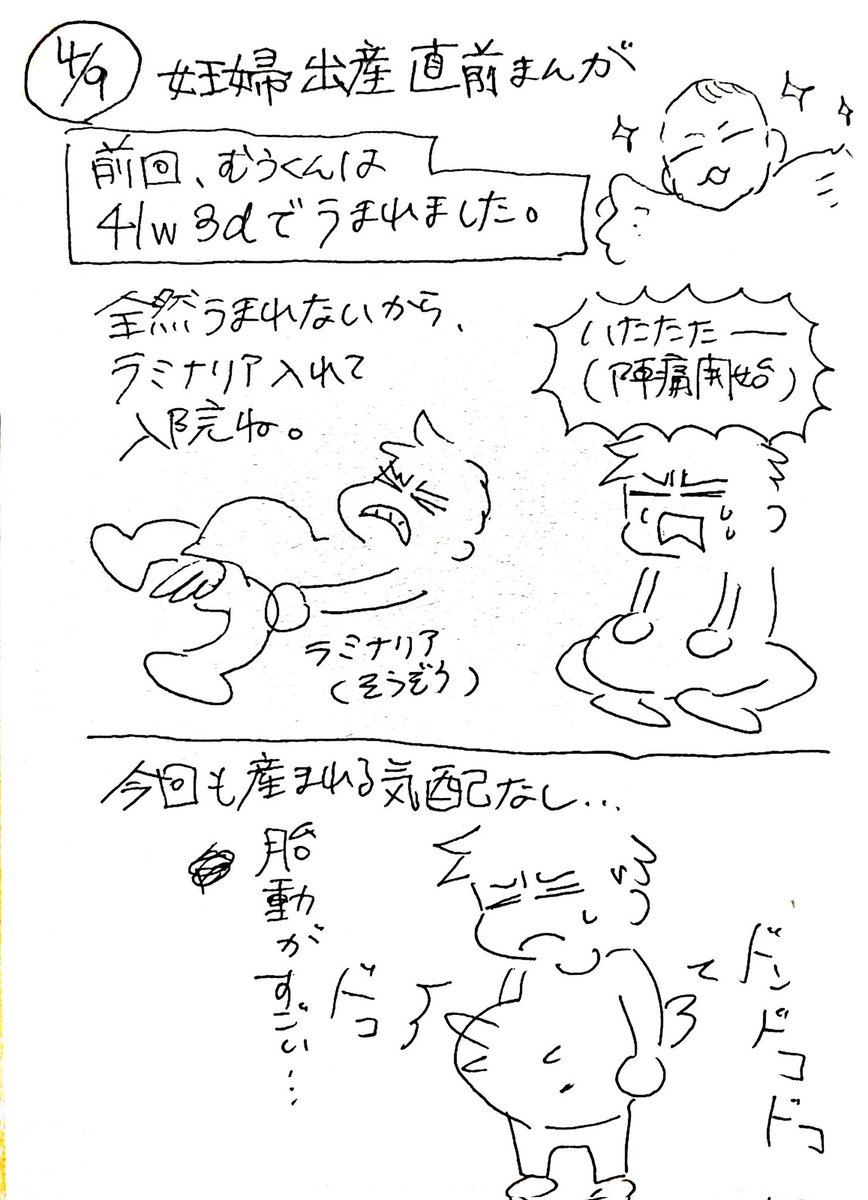 4/9
妊婦出産直前まんが
前回、むうくんは
41w3dでうまれました。
全然うまれないから、
ラミナリア入れて
入院ね。
いたたたー
(陣痛開始)
ラミナリア
(そうぞう)
今回も産まれる気配なし…
胎動がすごい…
ドコ
ドンドコドコ